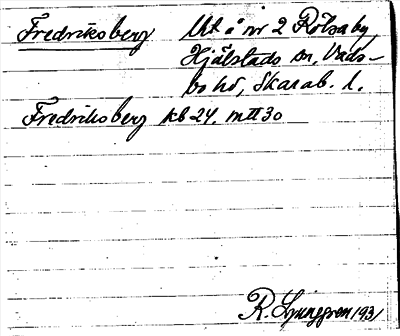 Fredriksberg Utå nr 2 Rölsaby,
Hjälstads sn, Vads-
bo hd, Skarab. l.
Fredriksberg kb 24. mtt 30
R. Ljunggren 1931